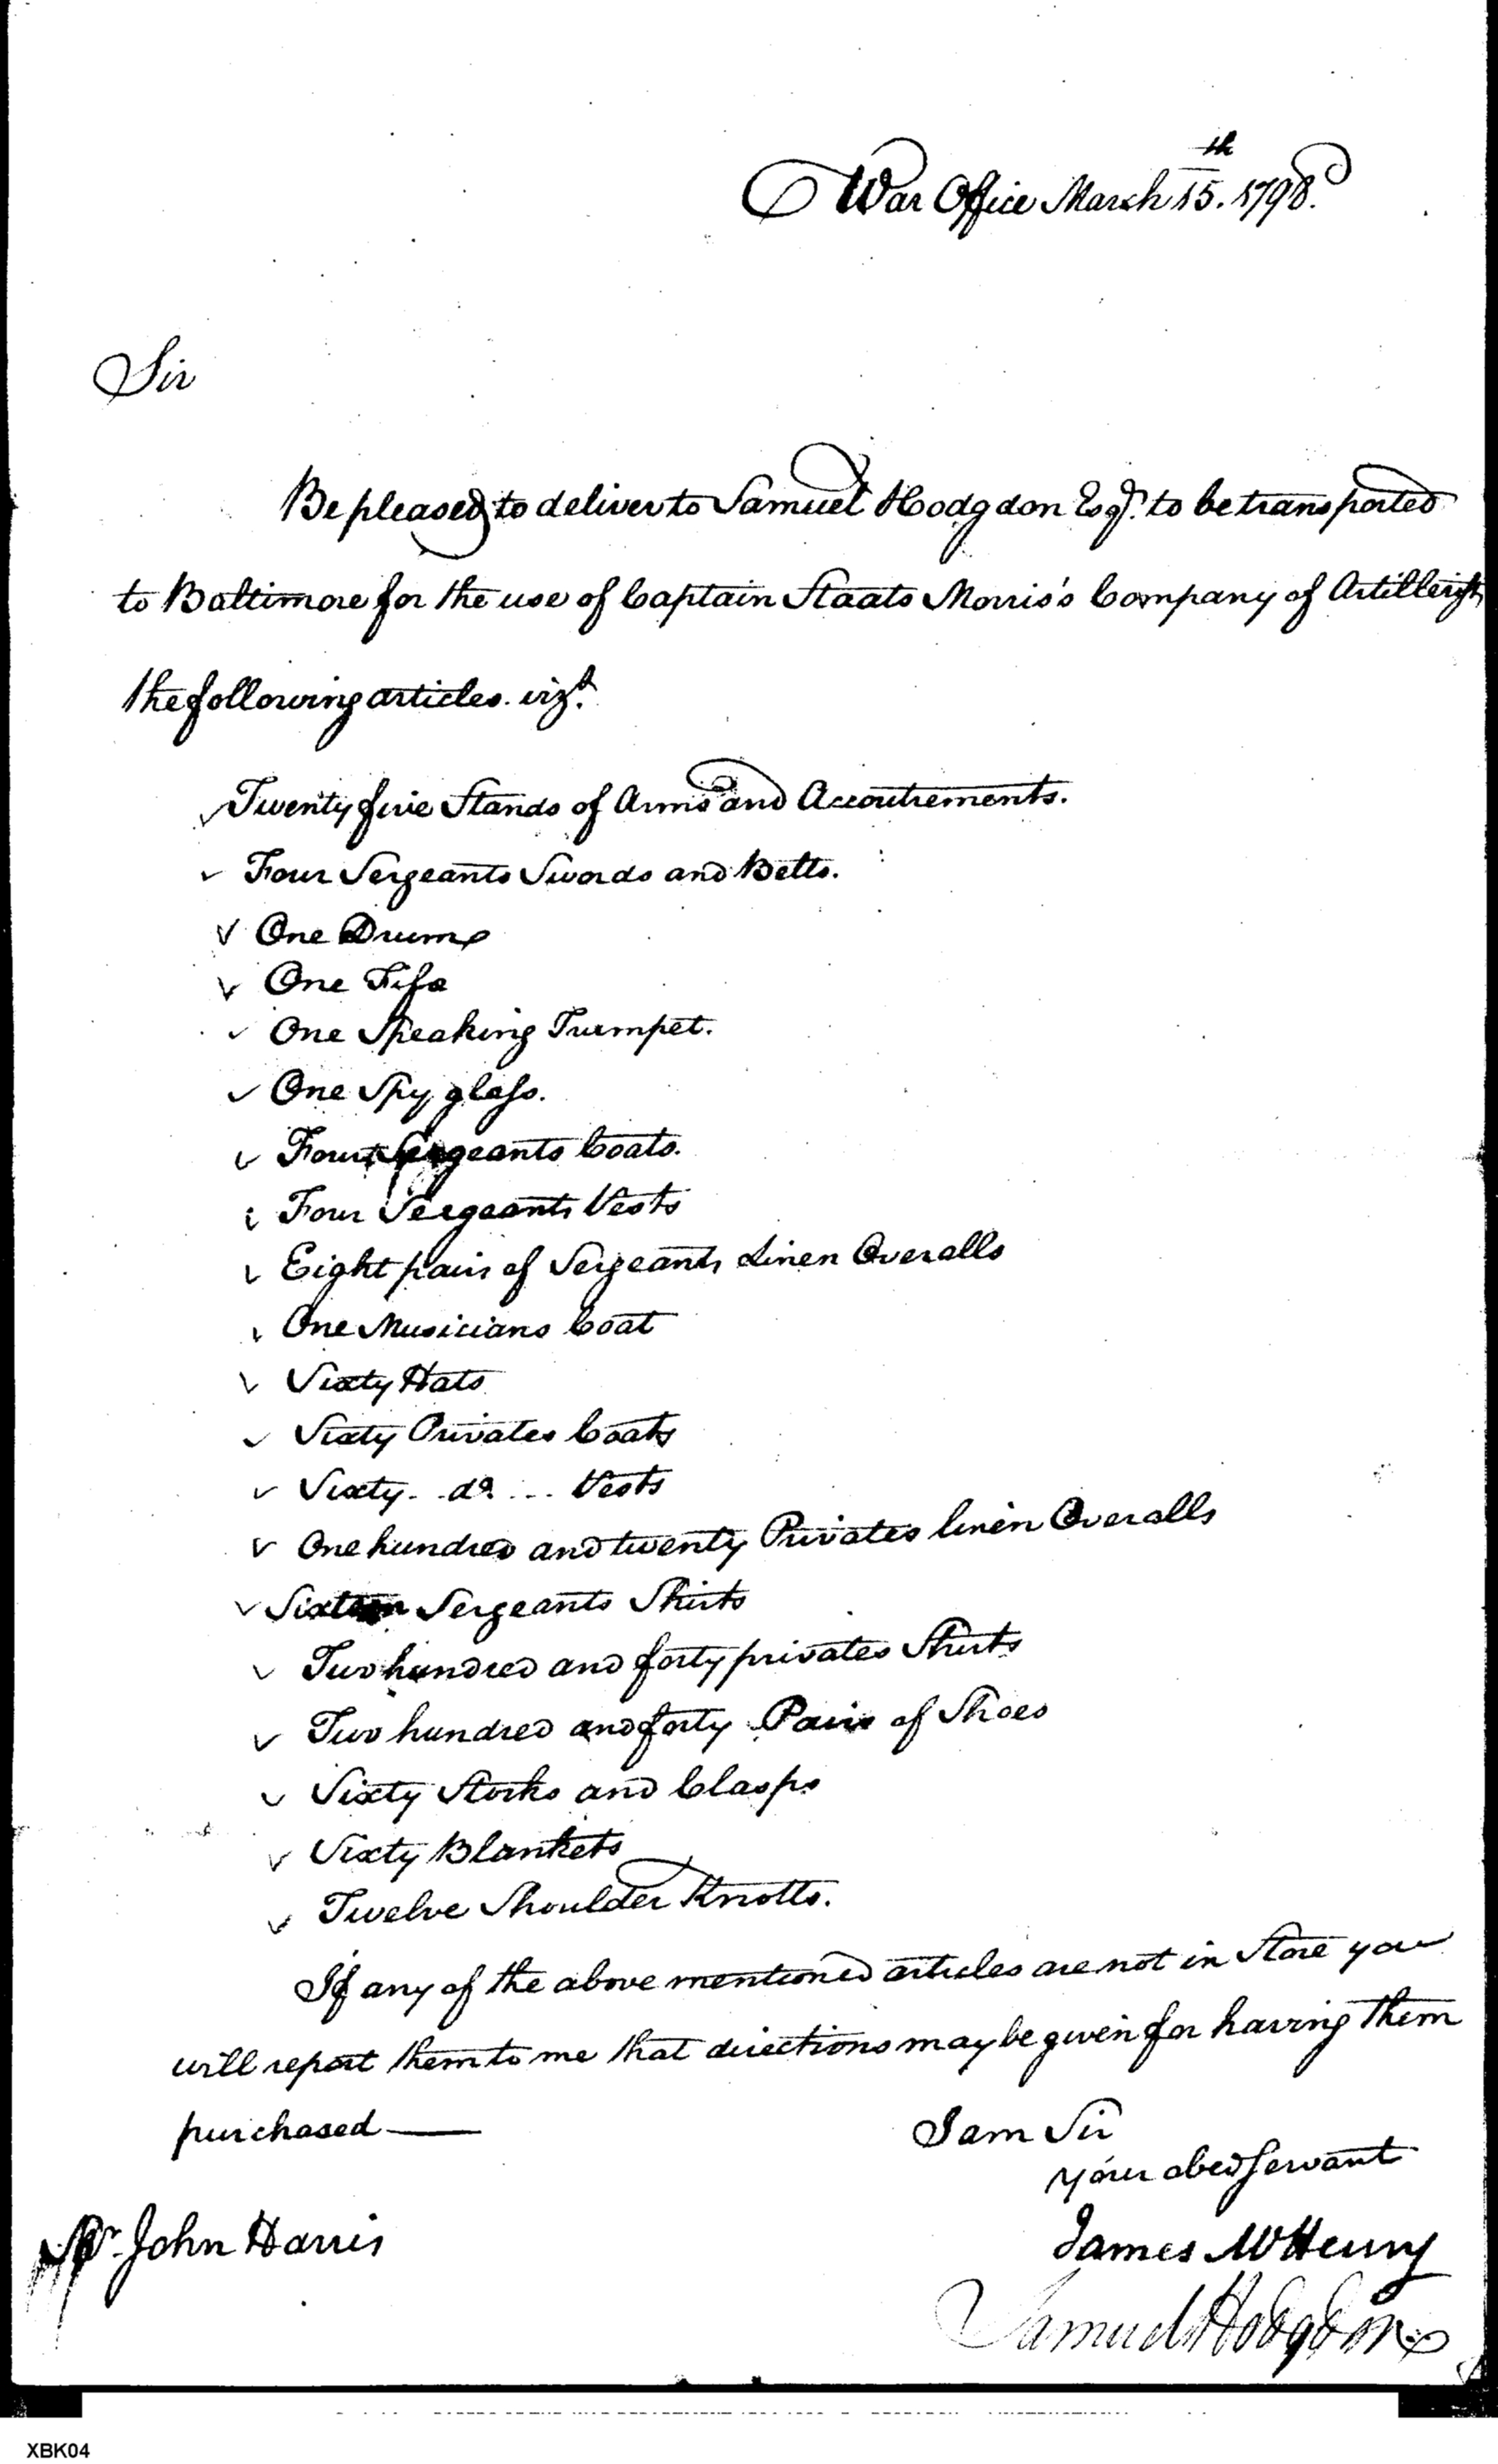 War Office March 15th. 1798.
Sir
Be pleased to deliver to Samuel Hodgdon Esqr. to be transported
to Baltimore for the use of Captain Staats Morris's Company of Artillerists
the following articles. vizt.
Twenty five Stands of Arms and Accoutrements.
Four Sergeants Swords and Belts.
One Drum
One Fife
One Speaking Trumpet.
One Spy glass.
Four Sergeants Coats.
Four Sergeants Vests
Eight pairs of Sergeants Linen Overalls
One Musicians Coat
Sixty Hats
Sixty Privates Coats
Sixty - do. - Vests
One hundred and twenty Privates linen Overalls
Sixteen Sergeants Shirts
Two hundred and forty privates Shirts
Two hundred and forty Pairs of Shoes
Sixty Stocks and Clasps
Sixty Blankets
Twelve Shoulder Knotts.
If any of the above mentioned articles are not in Store you
will report them to me that directions may be given for having them
purchased —
I am Sir
your obed Servant
Mr. John Harris
James McHenry
Samuel Hodgdon
XBK04